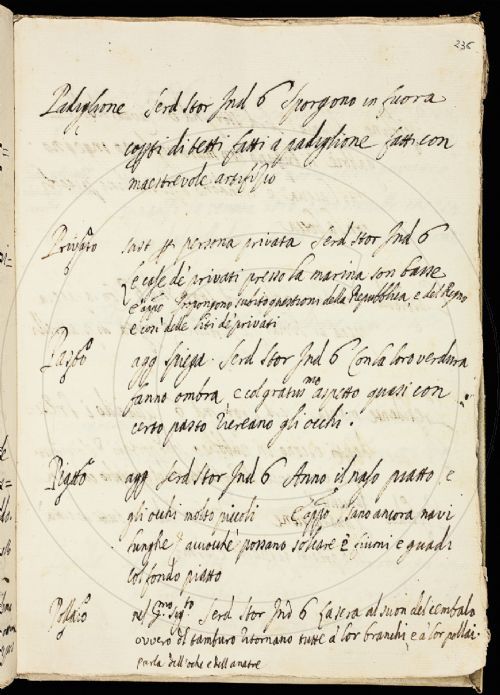 236
Padiglione Serd Stor Ind 6 Sporgono in fuora
coppi di tetti fatti a padiglione fatti con
maestrevole artifizio
Privato sust per persona privata Serd Stor Ind 6
e case de privati presso la marina son basse
e appo Propongono questioni della Repubblica, e del Regno
e così delle liti de privati
agg Spiega. Serd Stor Ind 6 Con la loro verdura
fanno ombra, e col gratissmo aspetto quasi con
certo pasto ricreano gli occhi.
Piatto agg Serd Stor Ind 6 Anno il naso piatto, e
gli occhi molto piccoli e appo Sono ancora navi
lunghe, acciocchè possano solcare e fiumi e guadi
col fondo piatto
Pollaio nel Serd Stor Ind 6 La sera al suon del cembalo
ovvero del tamburo ritornano tutte a lor branchi, e a lor pollai.
parla dell'oche e dell'anatre